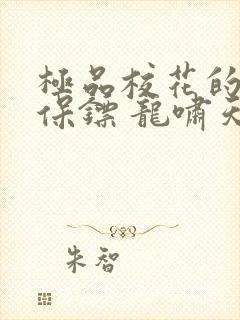 極品校花的
保鏢龍嘯天
朱智